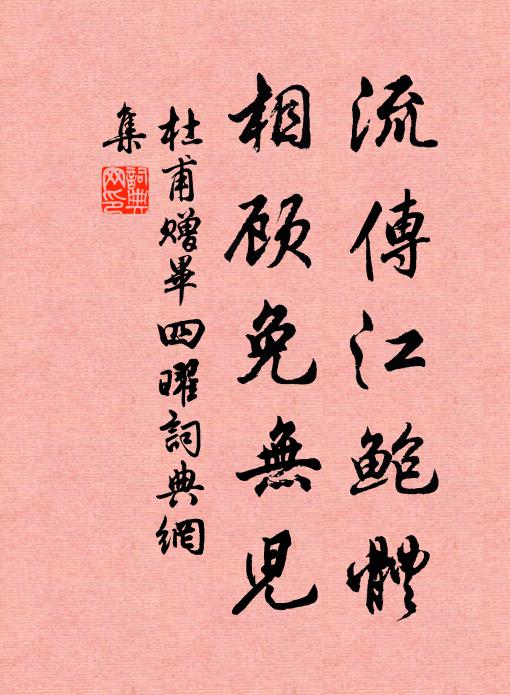 流傳江鮑體
相顾免無兒
杜甫赠畢四曜詞典網
集
詞典网印